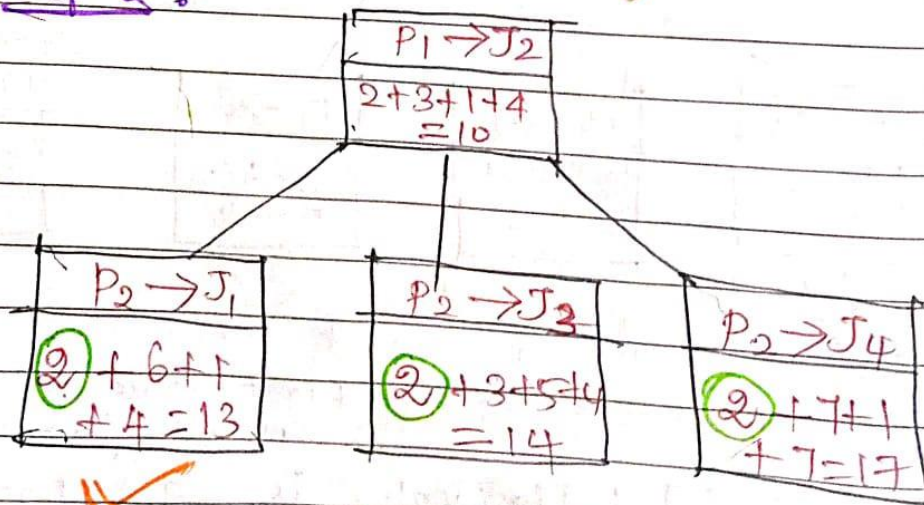 P1 → J2
2+3+1+4
=10
P2 → J1
2 + 6+1
+ 4 = 13
P2 → J3
2 +3+5+4
= 14
P2 → J4
2 +7+1
+ 7=17